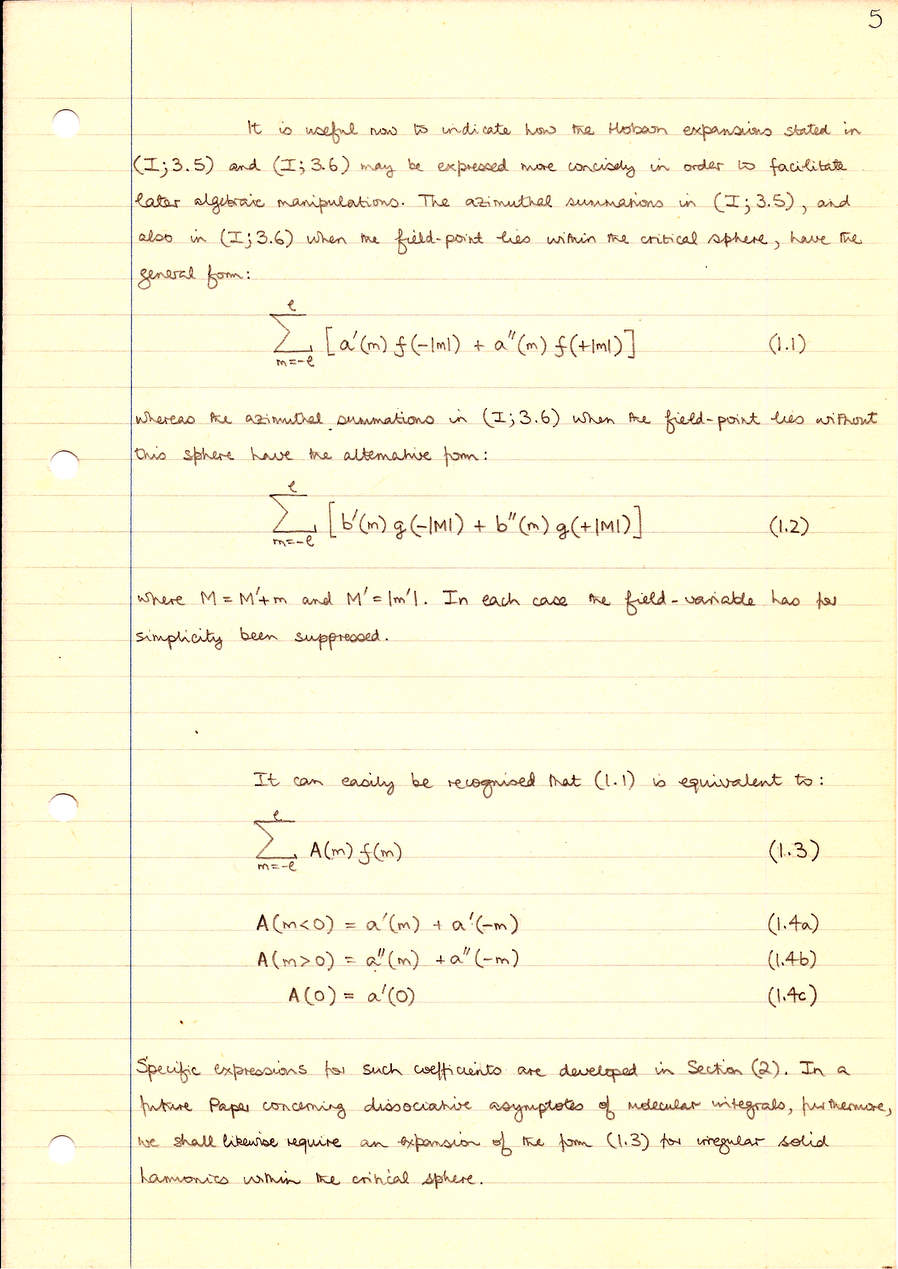 5
It is useful now to indicate how the Hobson expansions stated in
(I;3.5) and (I;3.6) may be expressed more concisely in order to facilitate
later algebraic manipulations. The azimuthal summations in (I;3.5), and
also in (I;3.6) when the field-point lies within the critical sphere, have the
general form:
∑_{m=-ℓ}^{ℓ} [a′(m) f(-|m|) + a″(m) f(+|m|)] (1.1)
whereas the azimuthal summations in (I;3.6) when the field-point lies without
this sphere have the alternative form:
∑_{m=-ℓ}^{ℓ} [b′(m) g(-|M|) + b″(m) g(+|M|)] (1.2)
where M = M′+m and M′ = |m′|. In each case the field-variable has for
simplicity been suppressed.
It can easily be recognised that (1.1) is equivalent to:
∑_{m=-ℓ}^{ℓ} A(m) f(m) (1.3)
A(m<0) = a′(m) + a′(-m) (1.4a)
A(m>0) = a″(m) + a″(-m) (1.4b)
A(0) = a′(0) (1.4c)
Specific expressions for such coefficients are developed in Section (2). In a
future Paper concerning dissociative asymptotes of molecular integrals, furthermore,
we shall likewise require an expansion of the form (1.3) for irregular solid
harmonics within the critical sphere.